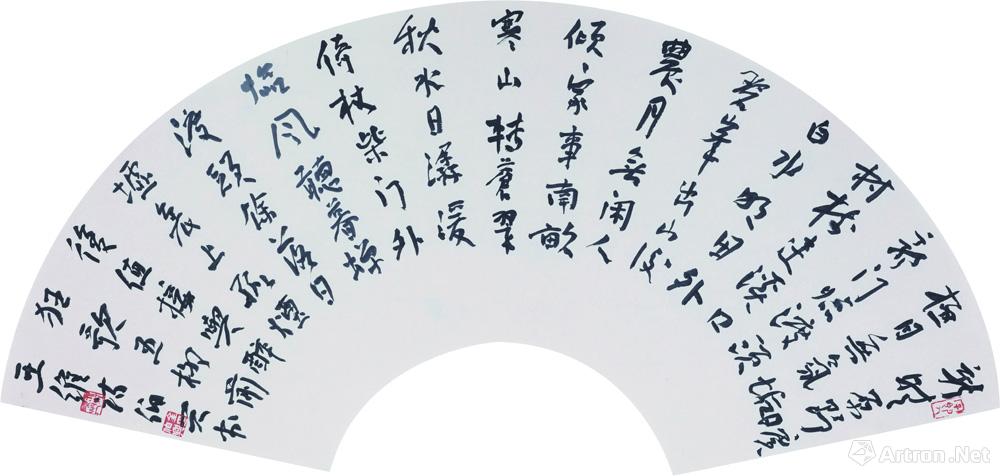 新晴原野曠
極目無氛垢
郭门臨渡頭
村樹連溪口
白水明田外
碧峯出山後
農月無闲人
傾家事南畝
寒山轉蒼翠
秋水日潺湲
倚杖柴门外
臨风聽暮蟬
渡頭餘落日
墟裏上孤煙
復值接輿醉
狂歌五柳前
王維詩
Artron.Net